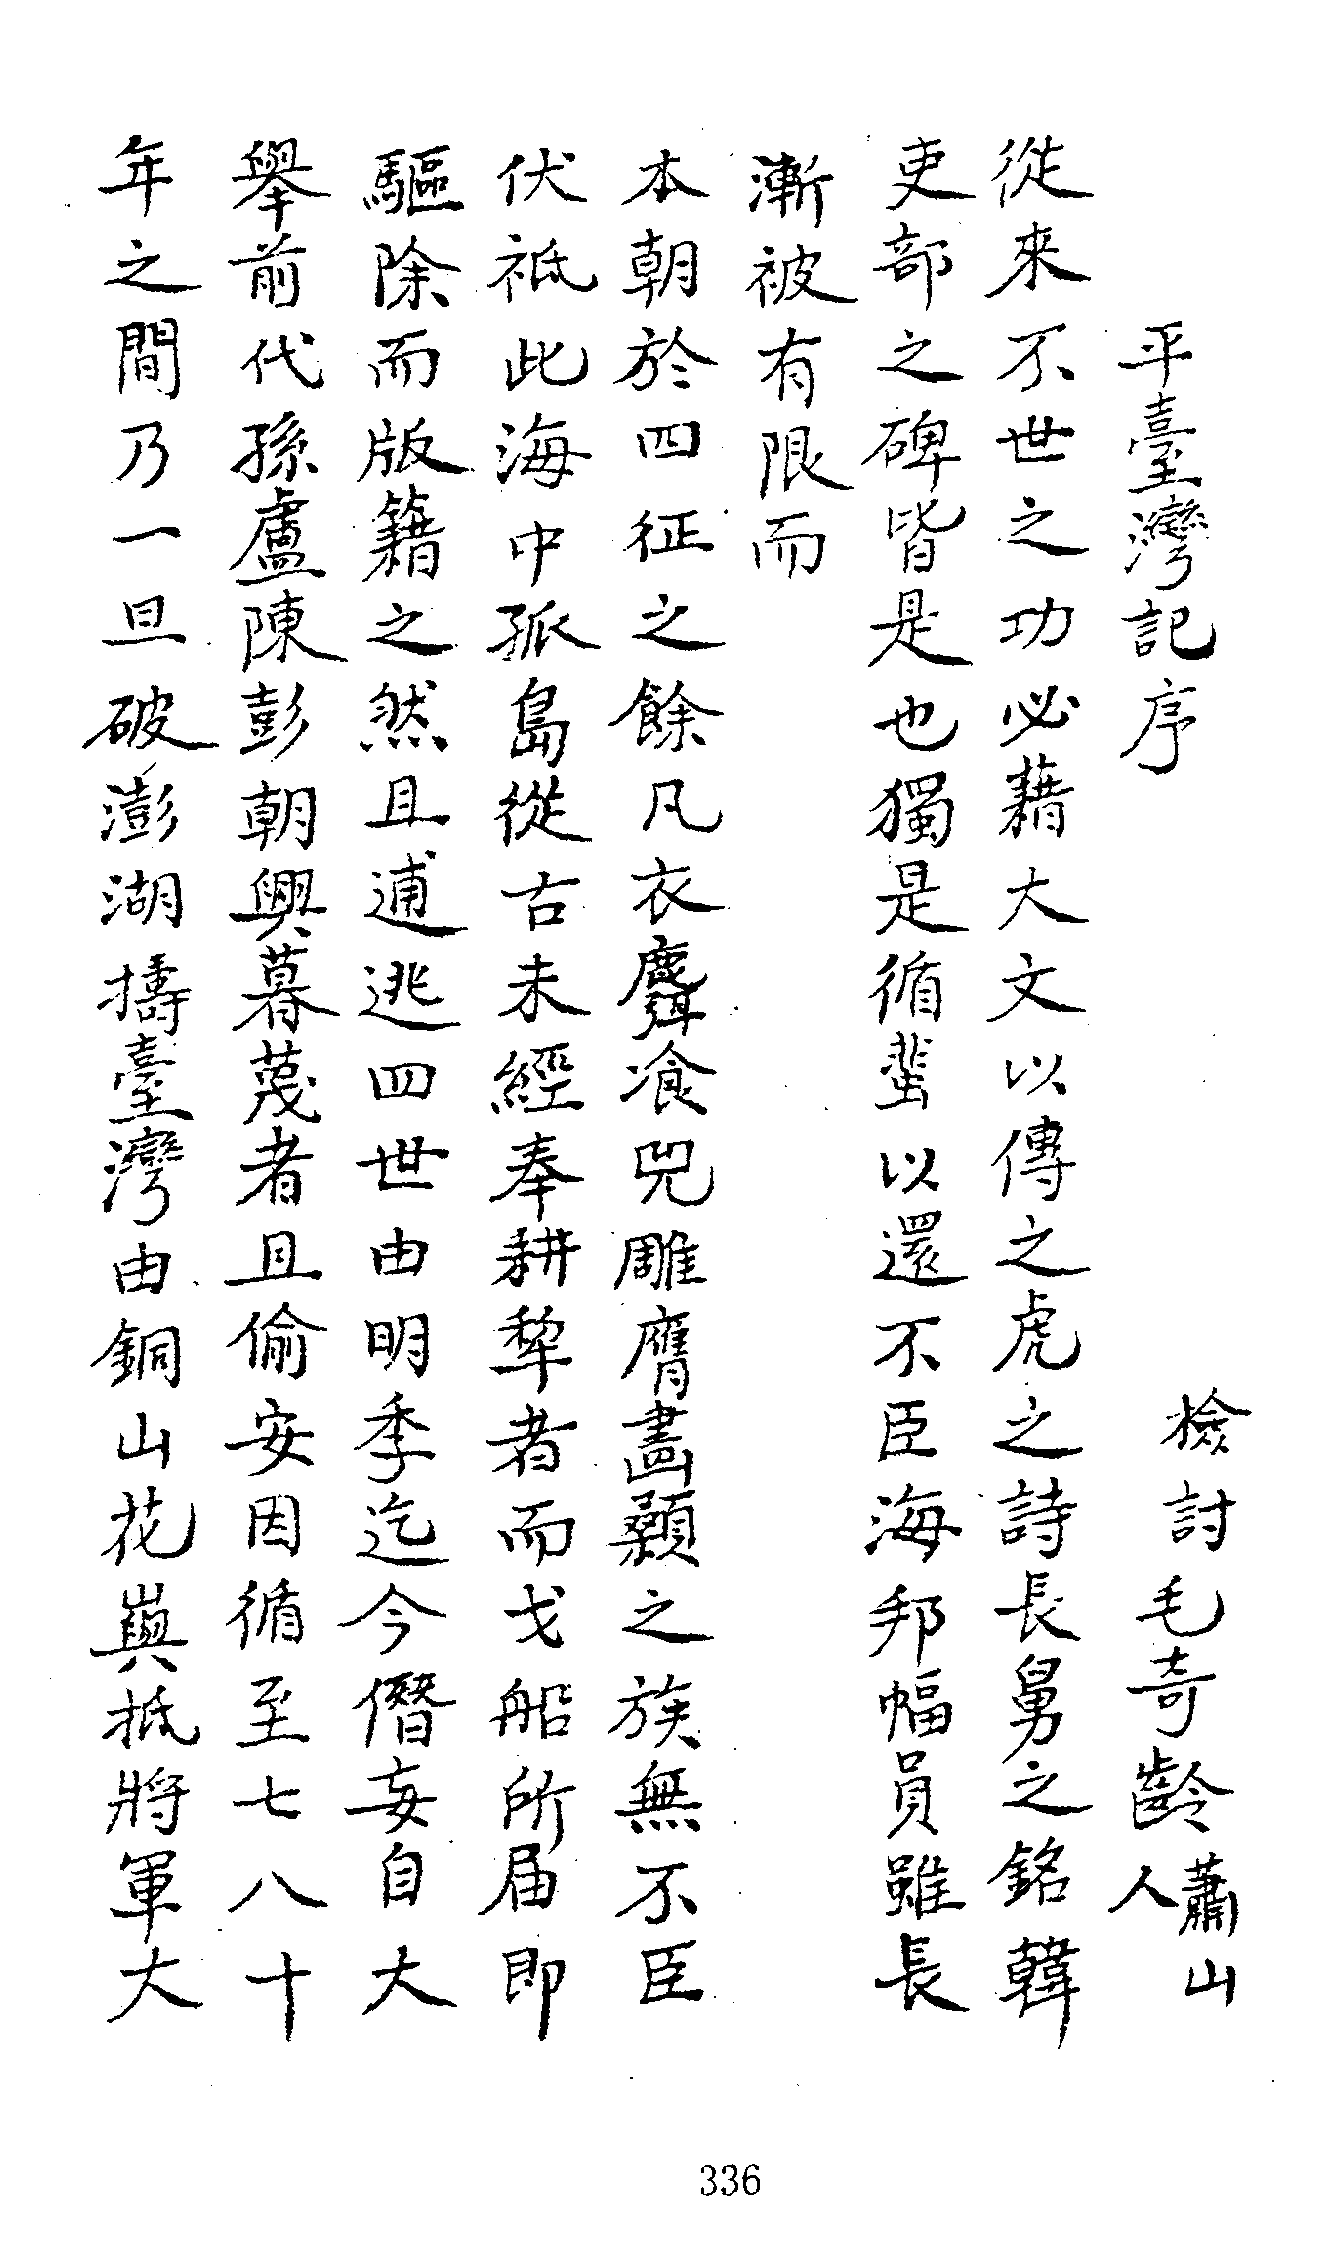 平臺灣記序
檢討毛奇齡蕭山人
從來不世之功必藉大文以傳之虎之詩長舅之銘韓
吏部之碑皆是也獨是循蜚以還不臣海邦幅員雖長
漸被有限而
本朝於四征之餘凡衣麛飡兕雕膺畫顙之族無不臣
伏祗此海中孤島從古未經奉耕犂者而戈船所届即
驅除而版籍之然且逋逃四世由明季迄今僭妄自大
舉前代孫盧陳彭朝興暮蔑者且偷安因循至七八十
年之間乃一旦破澎湖擣臺灣由銅山花嶼抵將軍大
336